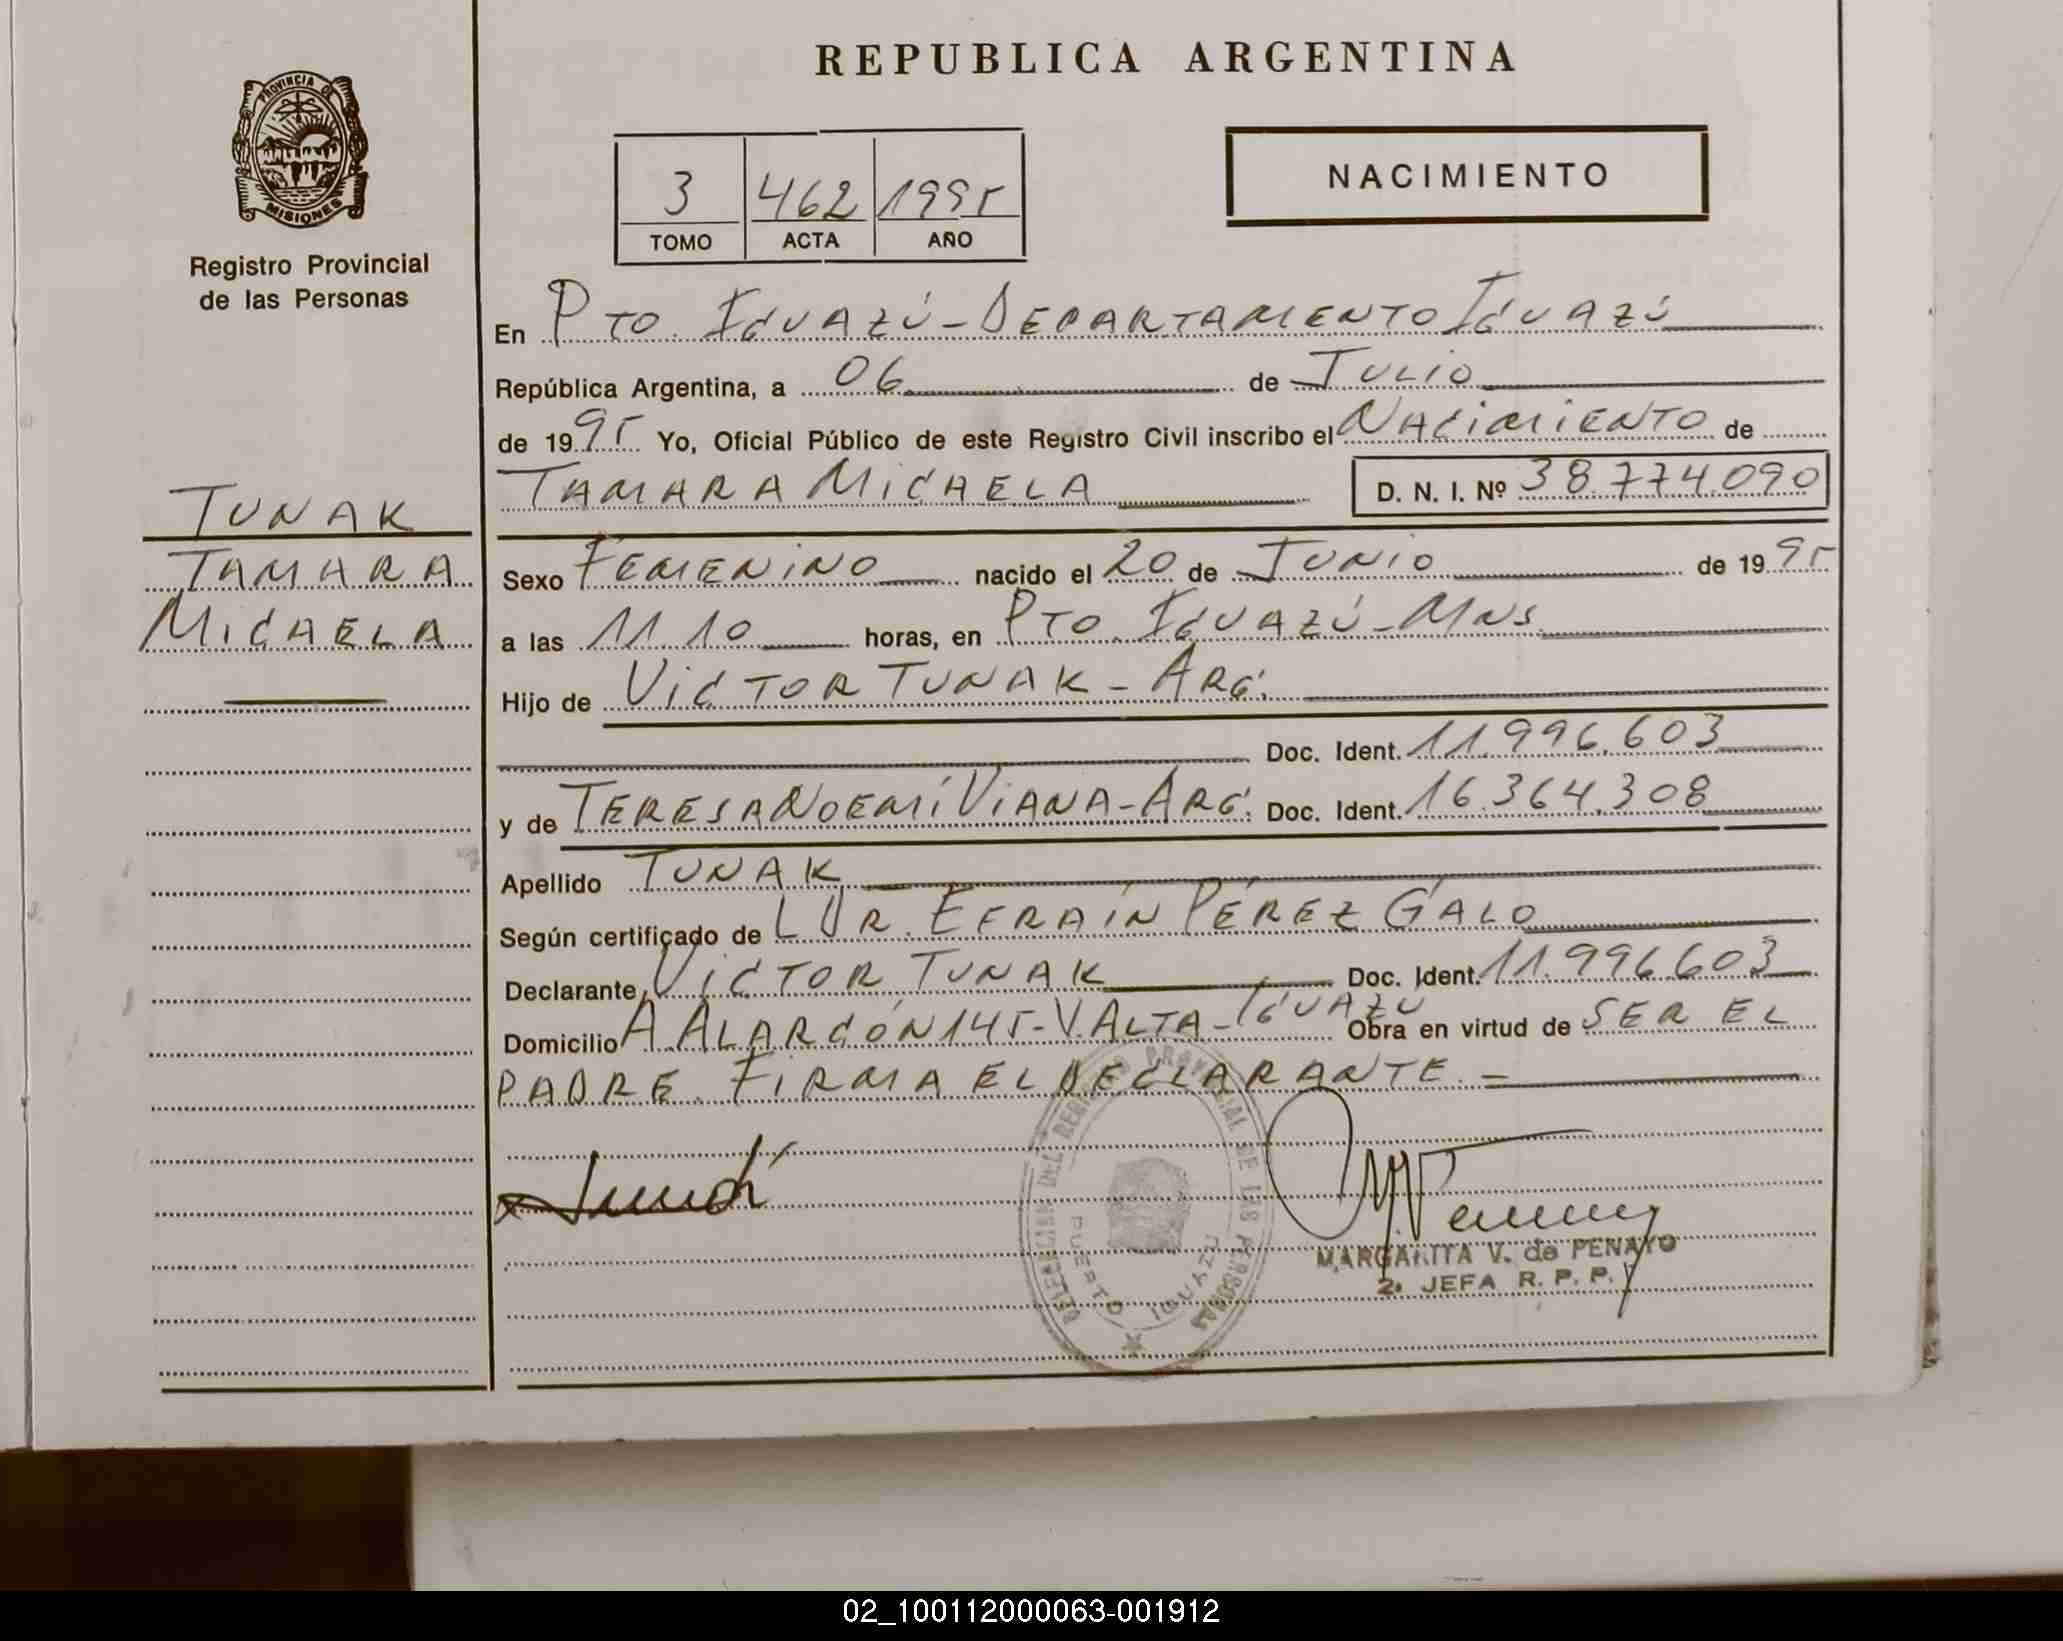 REPUBLICA ARGENTINA
PROVINCIA DE
MISIONES
Registro Provincial
de las Personas
3 462 1995
TOMO ACTA AÑO
NACIMIENTO
En Pto. Iguazú - Departamento Iguazú
República Argentina, a 06 de Julio
de 1995 Yo, Oficial Público de este Registro Civil inscribo el Nacimiento de
Tamara Micaela D. N. I. Nº 38.774.090
TUNAK
TAMARA
MICAELA
Sexo Femenino nacido el 20 de Junio de 1995
a las 11.10 horas, en Pto. Iguazú - Mns
Hijo de Victor Tunak - Arg.
Doc. Ident. 11.996.603
y de Teresa Noemí Viana - Arg. Doc. Ident. 16.364.308
Apellido Tunak
Según certificado de L Dr. Efraín Pérez Galo
Declarante Victor Tunak Doc. Ident. 11.996.603
Domicilio A. Alarcón 145 - V. Alta - Iguazú Obra en virtud de ser el
padre. Firma el declarante. -
DELEGACION DEL REGISTRO PROVINCIAL DE LAS PERSONAS
PUERTO IGUAZU
MARGARITA V. de PENAYO
2. JEFA R. P. P.
02_100112000063-001912